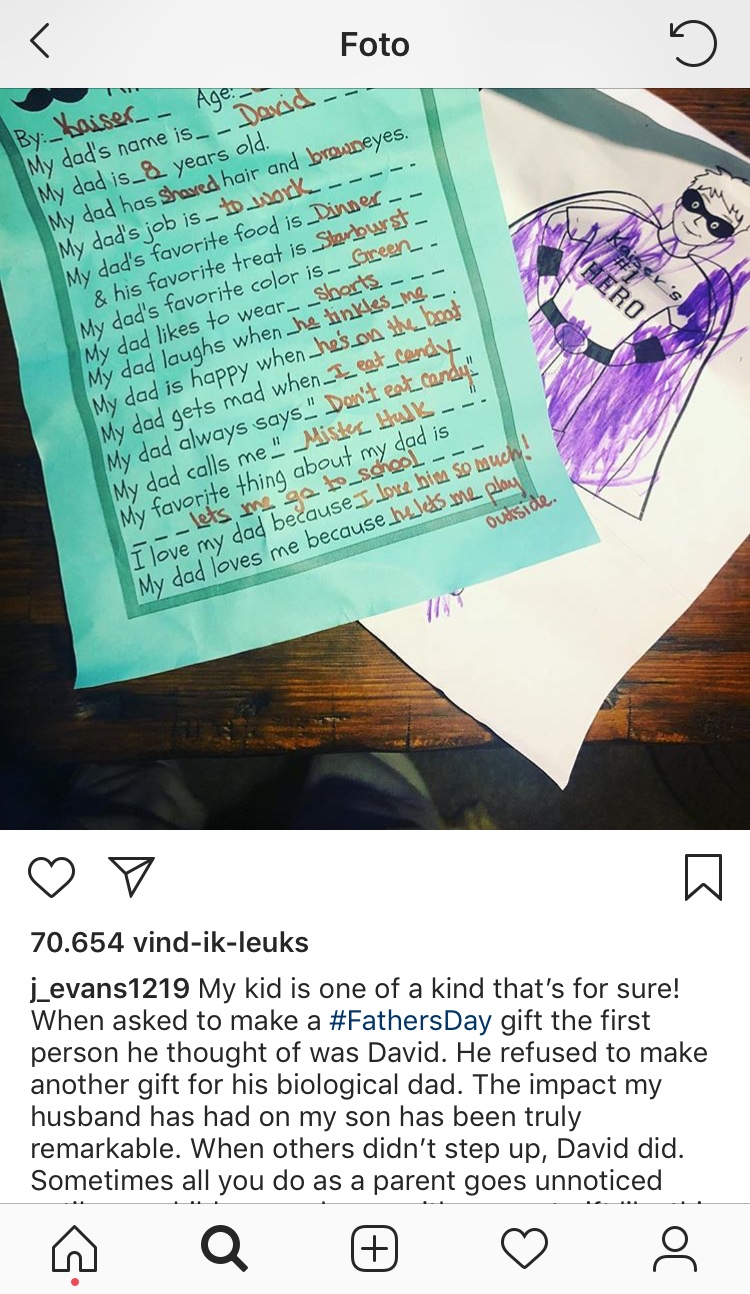 Foto
By: Kaiser Age:
My dad's name is David
My dad is 8 years old.
My dad has shaved hair and brown eyes.
My dad's job is to work
My dad's favorite food is Dinner
& his favorite treat is Starburst
My dad's favorite color is Green
My dad likes to wear shorts
My dad laughs when he tinkles me.
My dad is happy when he's on the boat
My dad gets mad when I eat candy
My dad always says "Don't eat candy"
My dad calls me "Mister Hulk"
My favorite thing about my dad is
lets me go to school
I love my dad because I love him so much!
My dad loves me because he lets me play
outside.
Kaiser's
#1
HERO
70.654 vind-ik-leuks
j_evans1219 My kid is one of a kind that’s for sure!
When asked to make a #FathersDay gift the first
person he thought of was David. He refused to make
another gift for his biological dad. The impact my
husband has had on my son has been truly
remarkable. When others didn’t step up, David did.
Sometimes all you do as a parent goes unnoticed